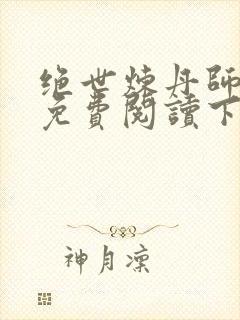 绝世炼丹师
免費閱讀下
神月凜